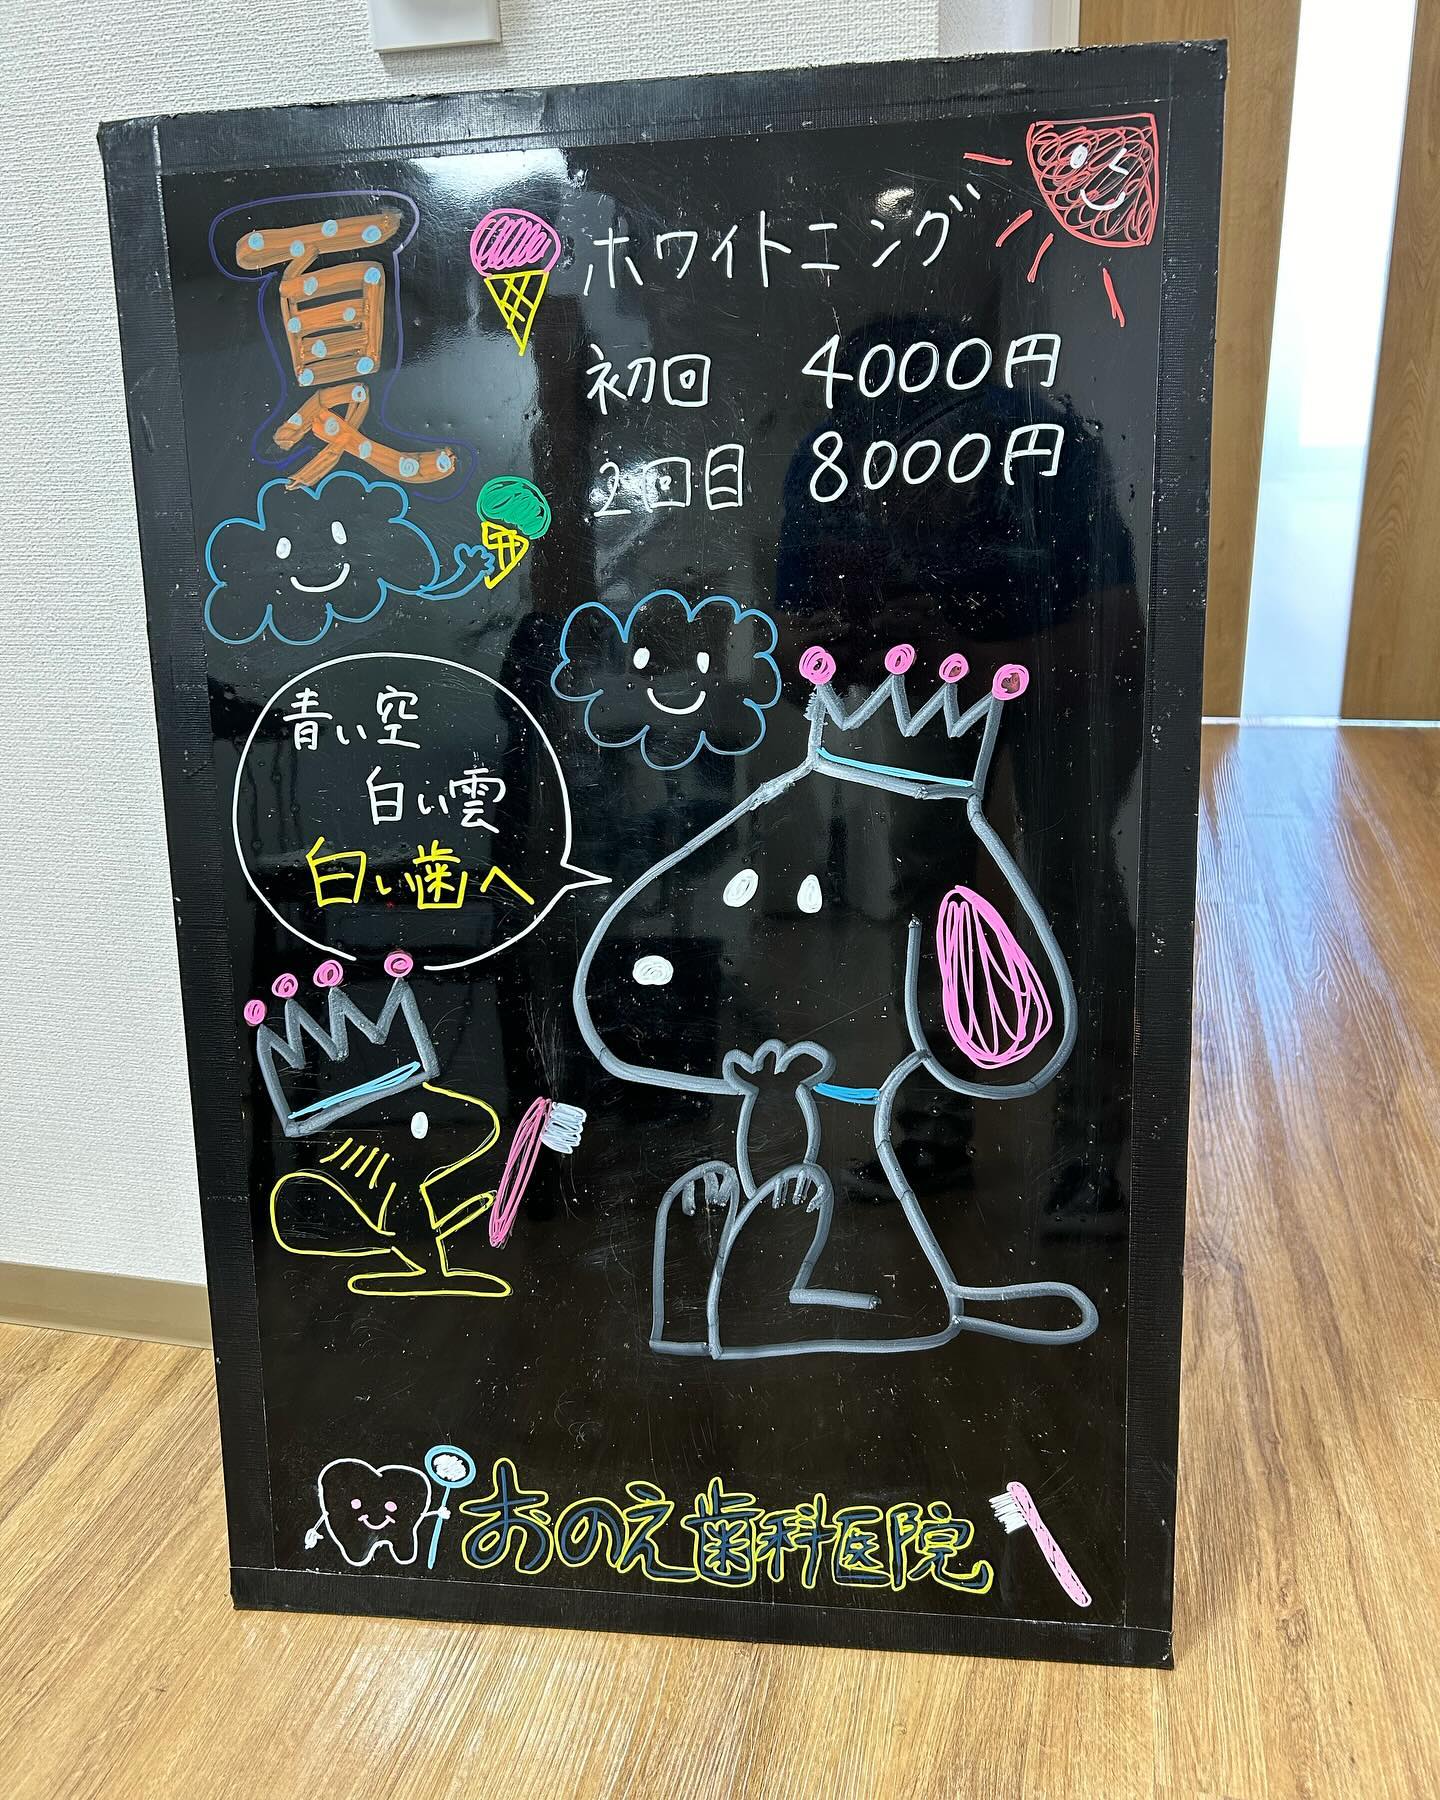 夏
ホワイトニング
初回 4000円
2回目 8000円
青い空
白い雲
白い歯へ
おのえ歯科医院